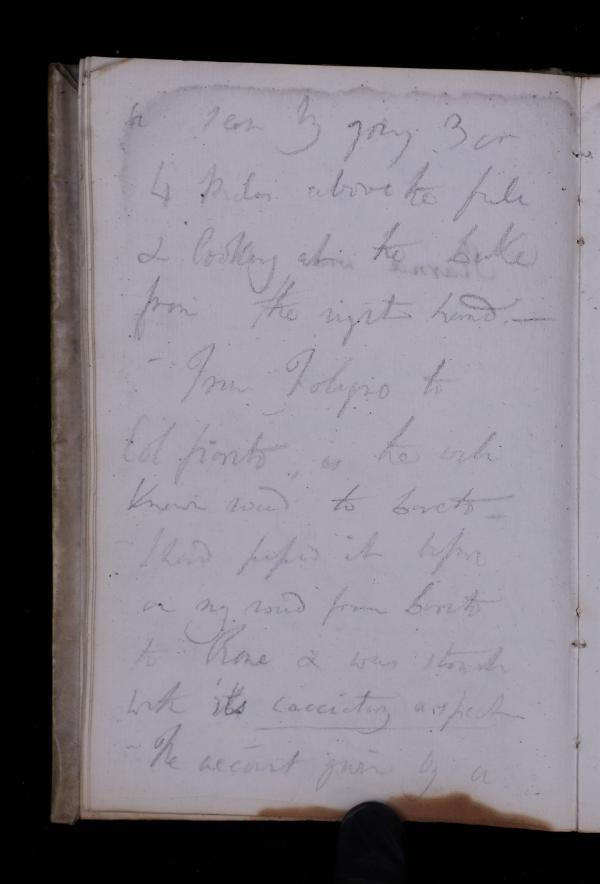 be seen by going 3 or
4 miles above the fall
& looking above the lake
from the right hand. —
- From Foligno to
Colfiorito, is the well
known road to Loreto -
- I had passed it before
on my road from Loreto
to Rome & was struck
with its aspect
- The account given by a